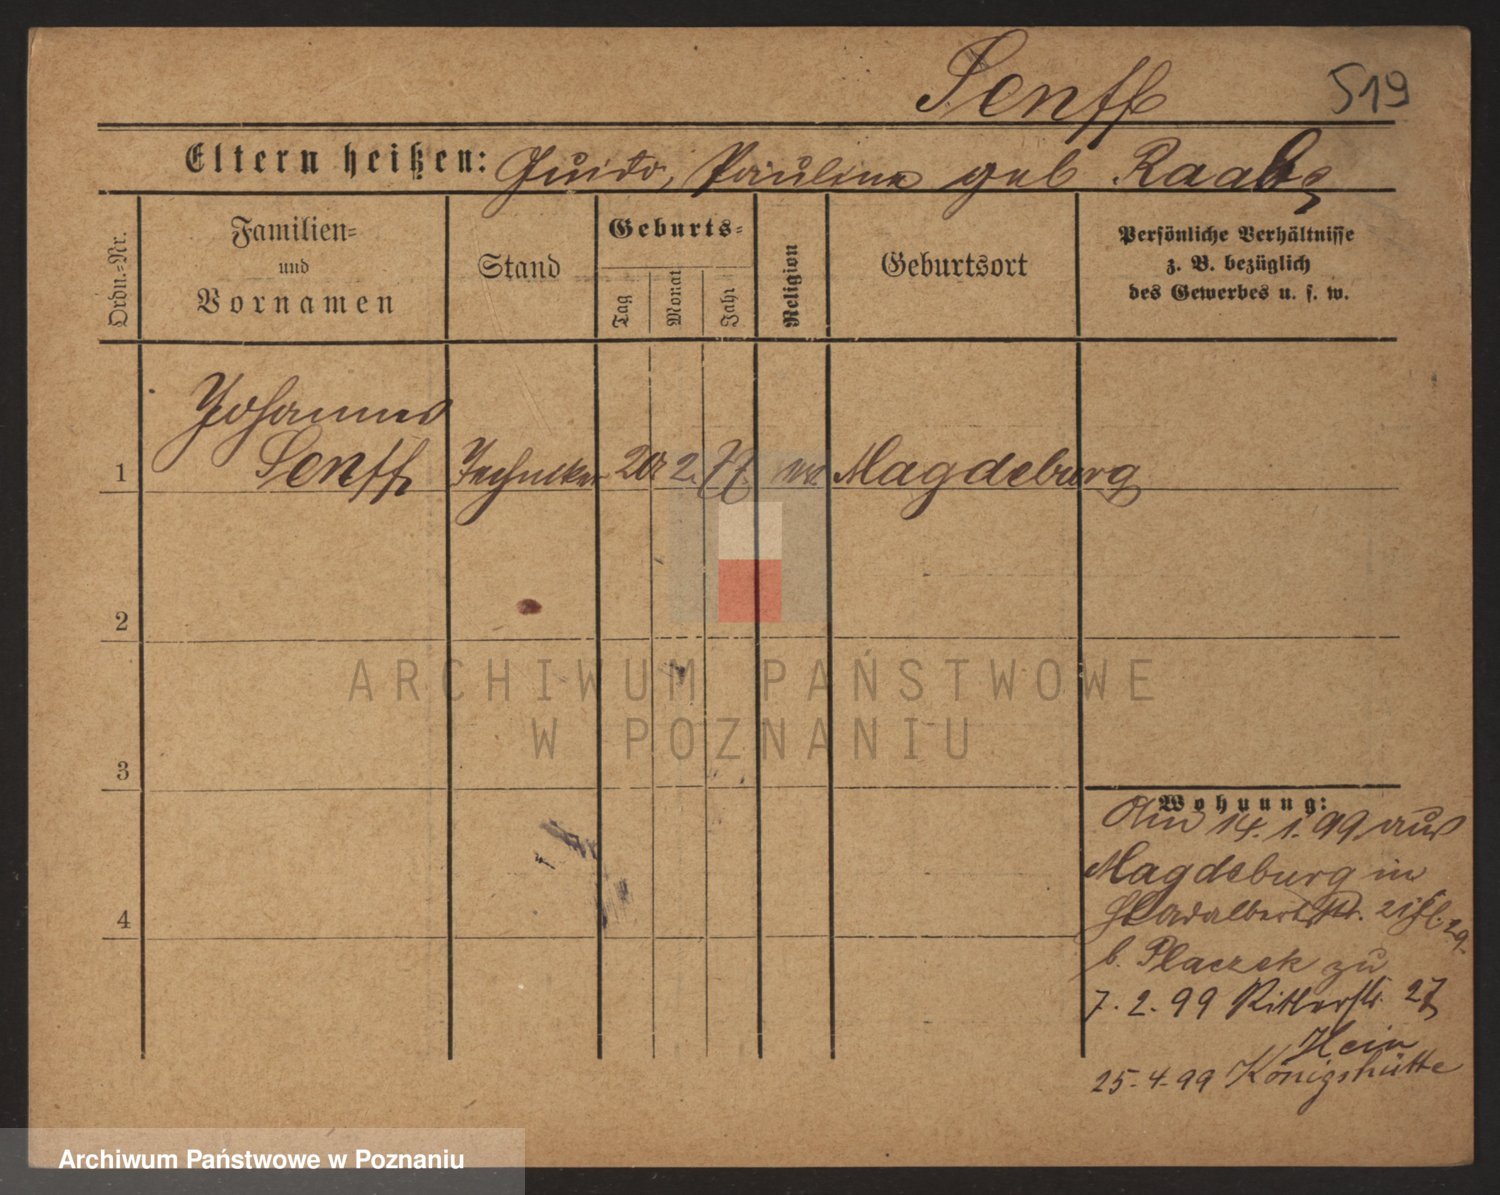 Senff 519
Eltern heißen: Guido, Pauline geb Raabe
Ordn.-Nr.
Familien-
und
Vornamen
Stand
Geburts-
Tag
Monat
Jahr
Religion
Geburtsort
Persönliche Verhältnisse
z. B. bezüglich
des Gewerbes u. s. w.
Johannes
1 Senff Techniker 20 2. 77. ev. Magdeburg
2
ARCHIWUM PAŃSTWOWE
W POZNANIU
3
Wohnung:
Am 14. 1. 99 aus
Magdeburg in
4
b. Placzek zu
7. 2. 99 Ritterstr. 27
Hein
25. 4. 99 Königshütte
Archiwum Państwowe w Poznaniu